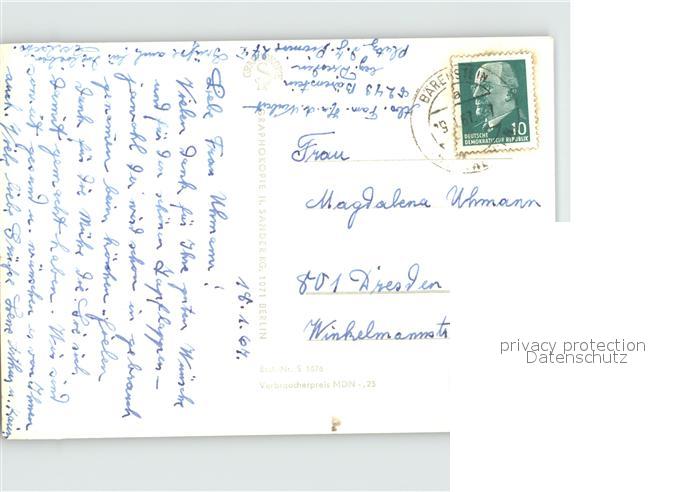 Liebe Frau Uhmann!
Vielen Dank für Ihre guten Wünsche
und für den schönen Topflappen –
jawohl der wird schon in gebrauch
genommen beim kochen. Vielen
Dank für die Mühe die Sie sich
damit gemacht haben. Wir sind
soweit gesund u. wünschen es von Ihnen
auch. Viele liebe Grüße
18.1.67.
Abs. Fam.
8243 Bärenstein
Bez. Dresden
BÄRENSTEIN
10
DEUTSCHE
DEMOKRATISCHE REPUBLIK
Frau
Magdalena Uhmann
801 Dresden
Winkelmannstr
H. SANDER KG, 1071 BERLIN
Best.-Nr. S 1676
Verbraucherpreis MDN -,25
privacy protection
Datenschutz